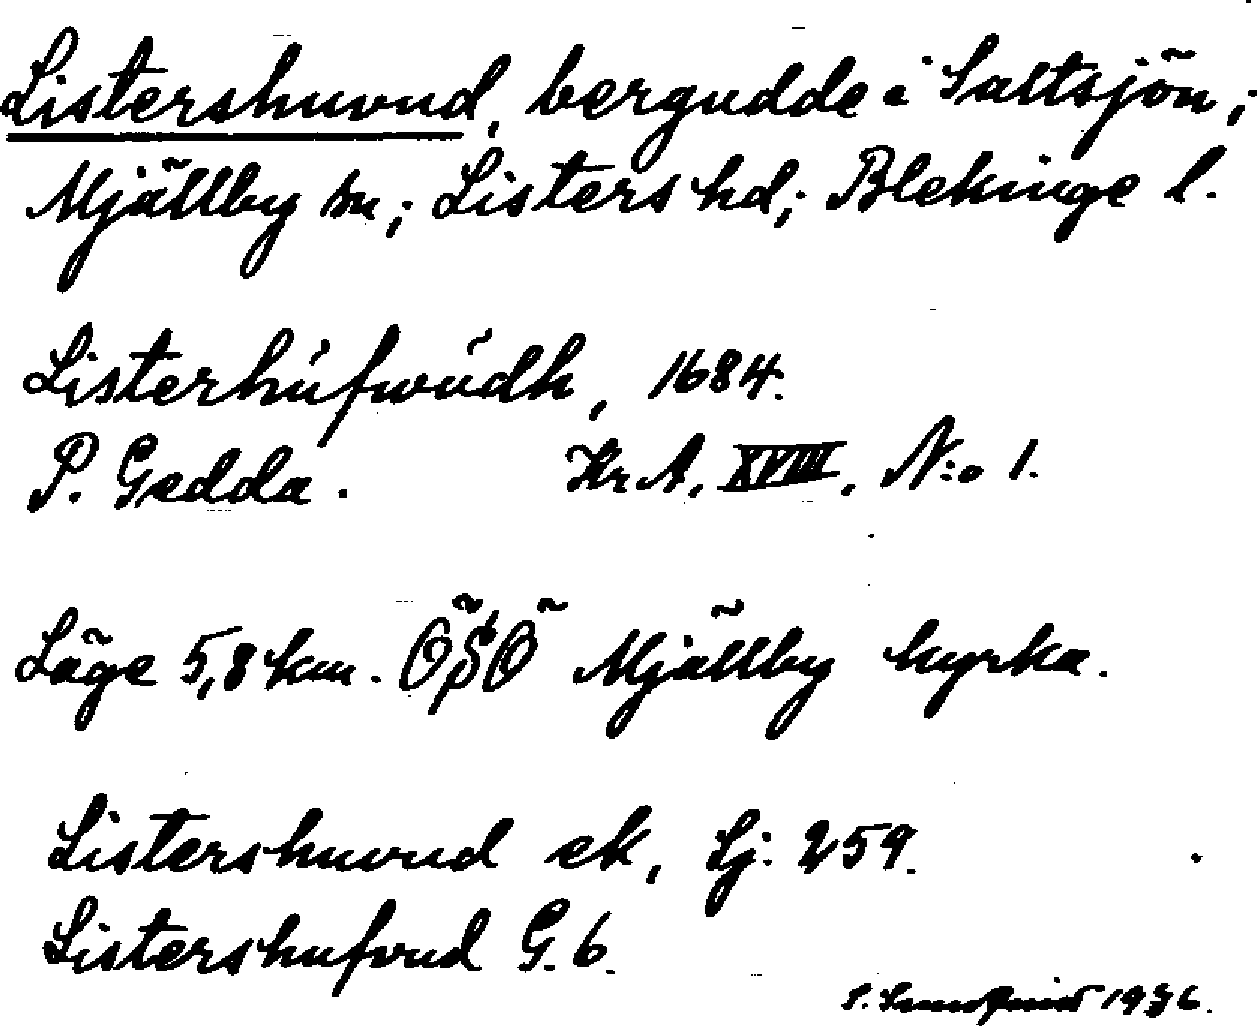 Listershuvud, bergudde i Saltsjön;
Mjällby sn; Listers hd; Blekinge l.
Listerhúfwŭdh, 1684.
P. Gedda. Kr A, XVIII, N:o 1.
Läge 5,8 km. ÖSÖ Mjällby kyrka.
Listershuvud ek, Lj: 259.
Listershufvud G. 6.
1936.